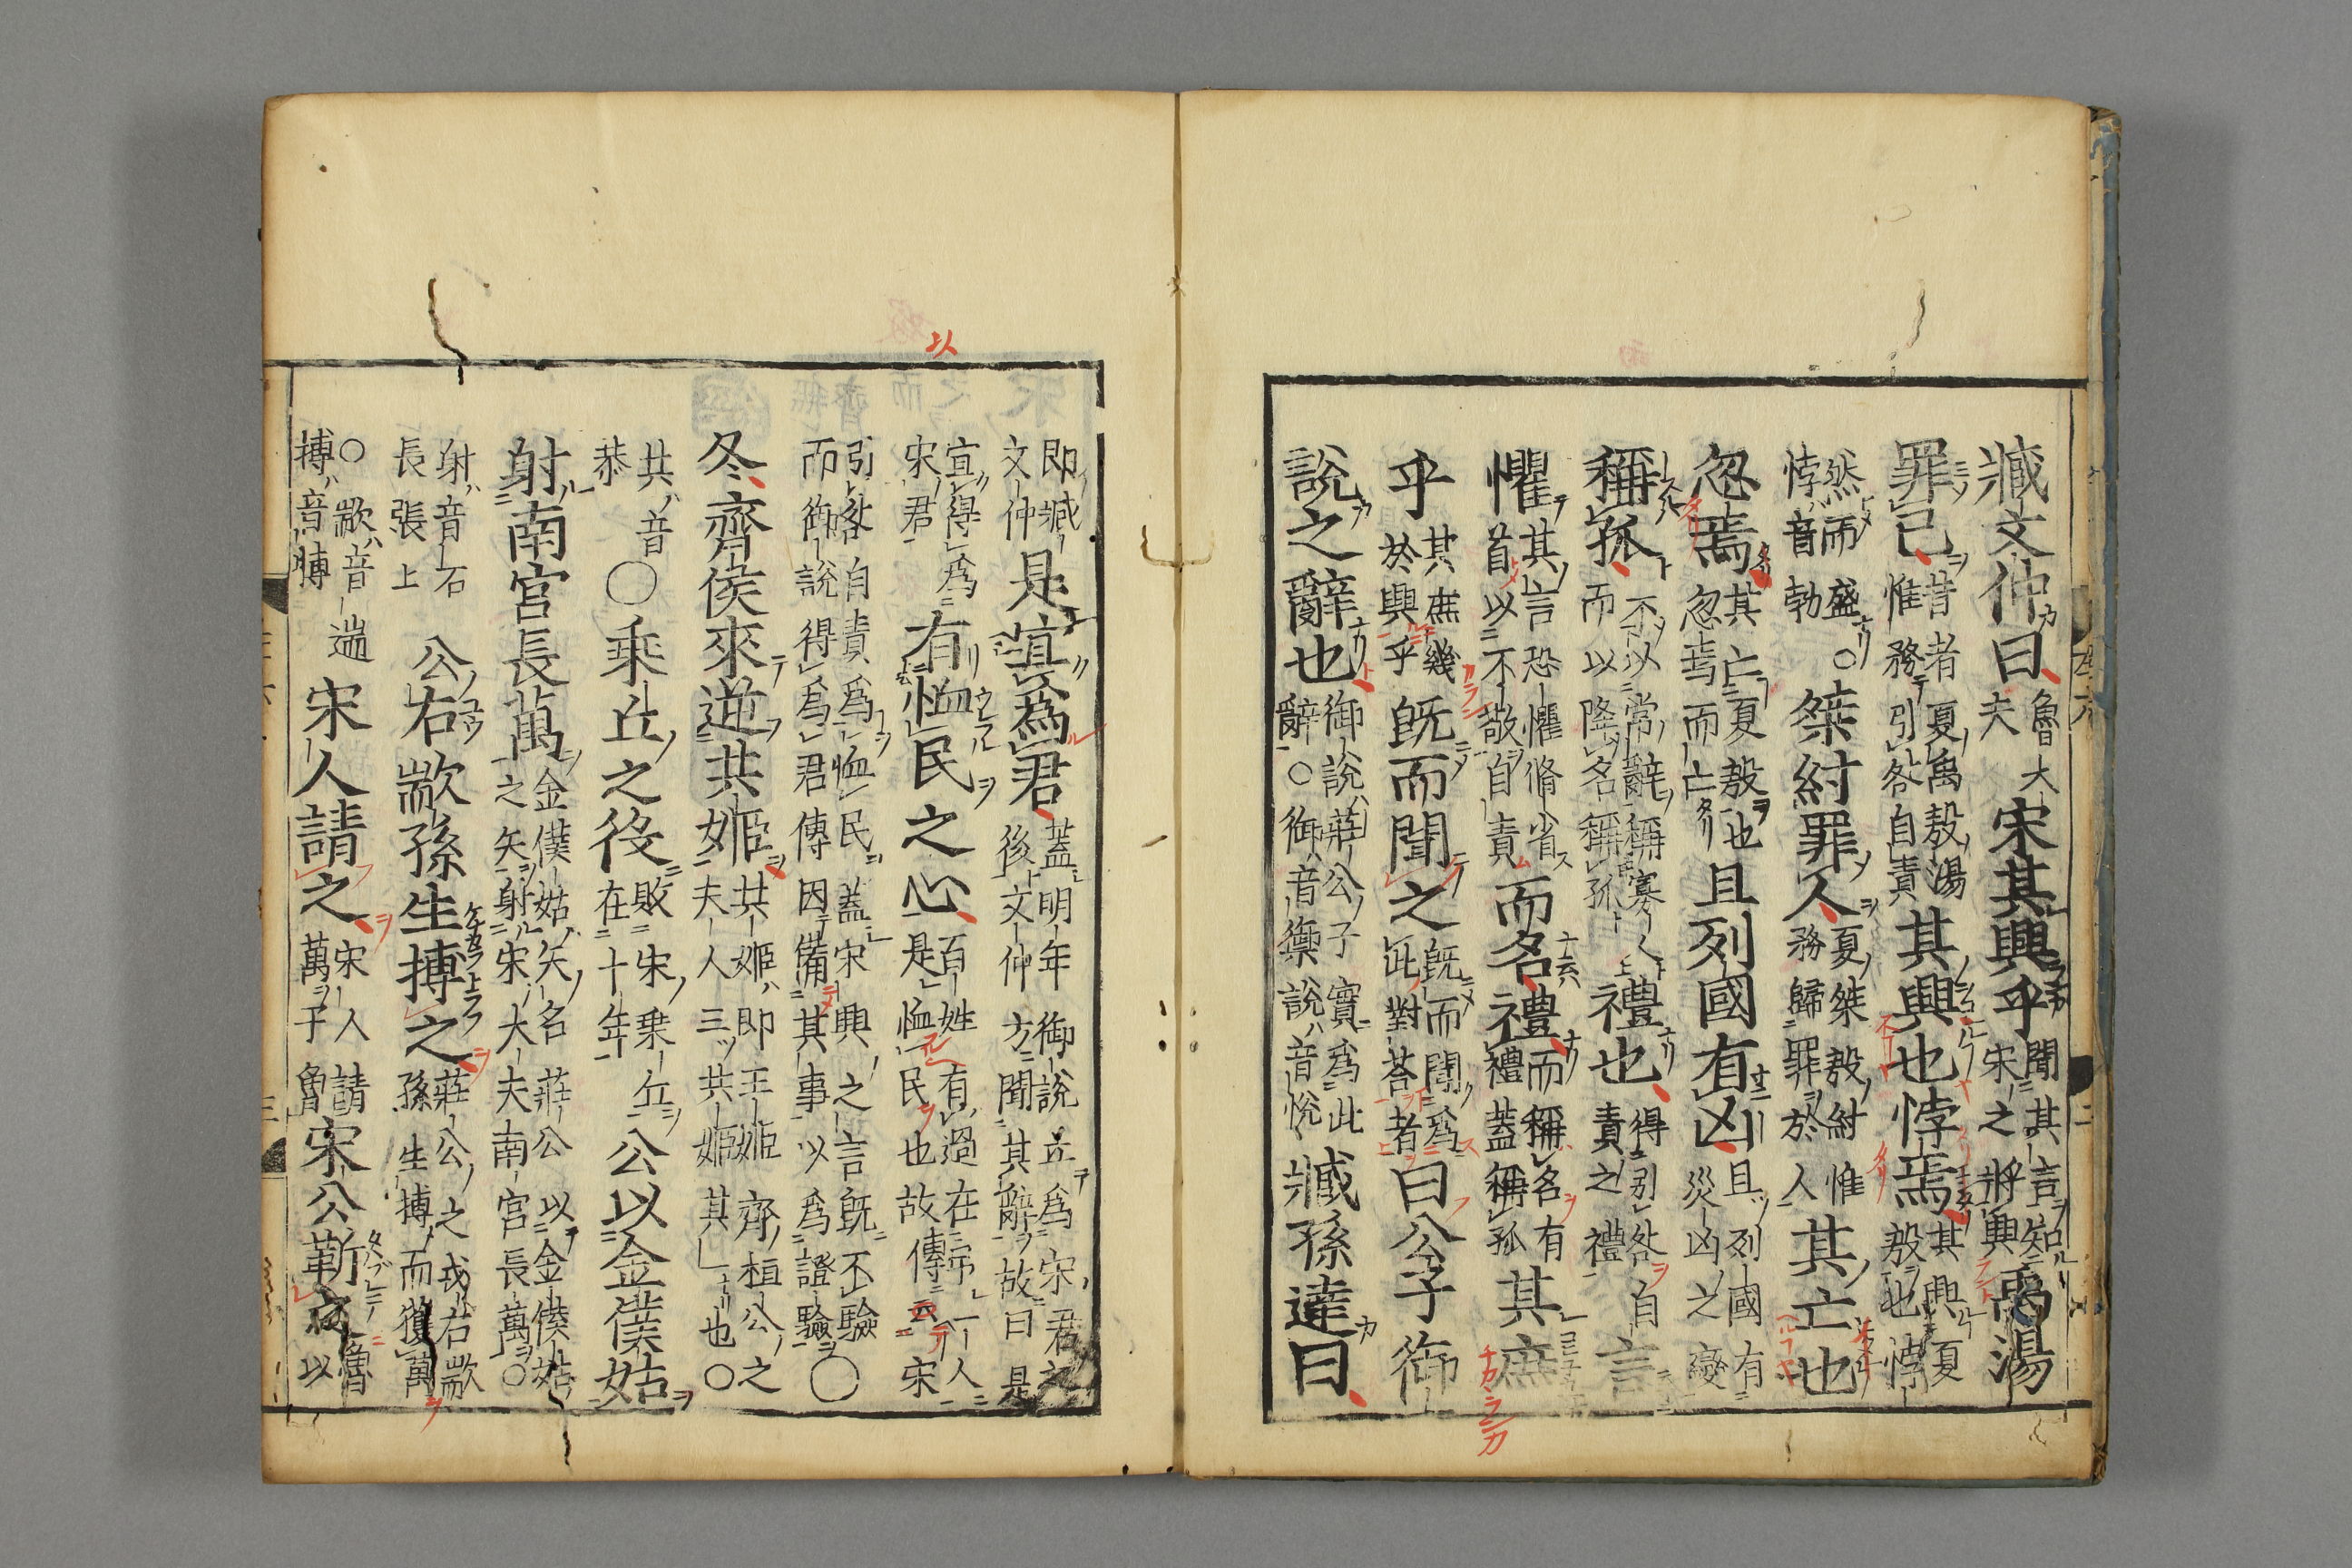 臧文仲曰魯大夫宋其興乎聞其言知宋之將興禹湯
罪己昔者夏禹殷湯惟務引咎自責其興也悖焉其興夏殷也悖
然而盛○悖音勃桀紂罪人夏桀殷紂惟務歸罪於人其亡也
忽焉其亡夏殷也忽焉而亡且列國有凶且列國有災凶之變
稱孤不以常辭稱寡人而以降名稱孤禮也得引咎自責之禮言
懼其言恐懼脩省首以不敢自責而名禮而稱名有禮蓋稱孤其庶
乎其庶幾於興乎既而聞之既而聞為此對荅者曰公子御
說之辭也御說莊公子實為此辭○御音禦說音悅臧孫達曰
即臧文仲是宜為君蓋明年御說立為宋君文仲方聞其辭故曰是
宜得為宋君有恤民之心百姓有過在予一人是恤民也故傳云宋
引咎自責為恤民蓋宋興之言既不驗而御說得為君傳因備其事以為證驗○
冬齊侯來逆共姬共姬即王姬齊桓公之夫人三共姬其一也○
共音恭○乘丘之役敗宋乘丘在十年公以金僕姑
射南宮長萬金僕姑矢名莊公以金僕姑之矢射宋大夫南宮長萬○
射音石長張上公右歂孫生搏之莊公之戎右歂孫生搏而獲萬
○歂音遄搏音博宋人請之宋人請萬于魯宋公靳之魯以